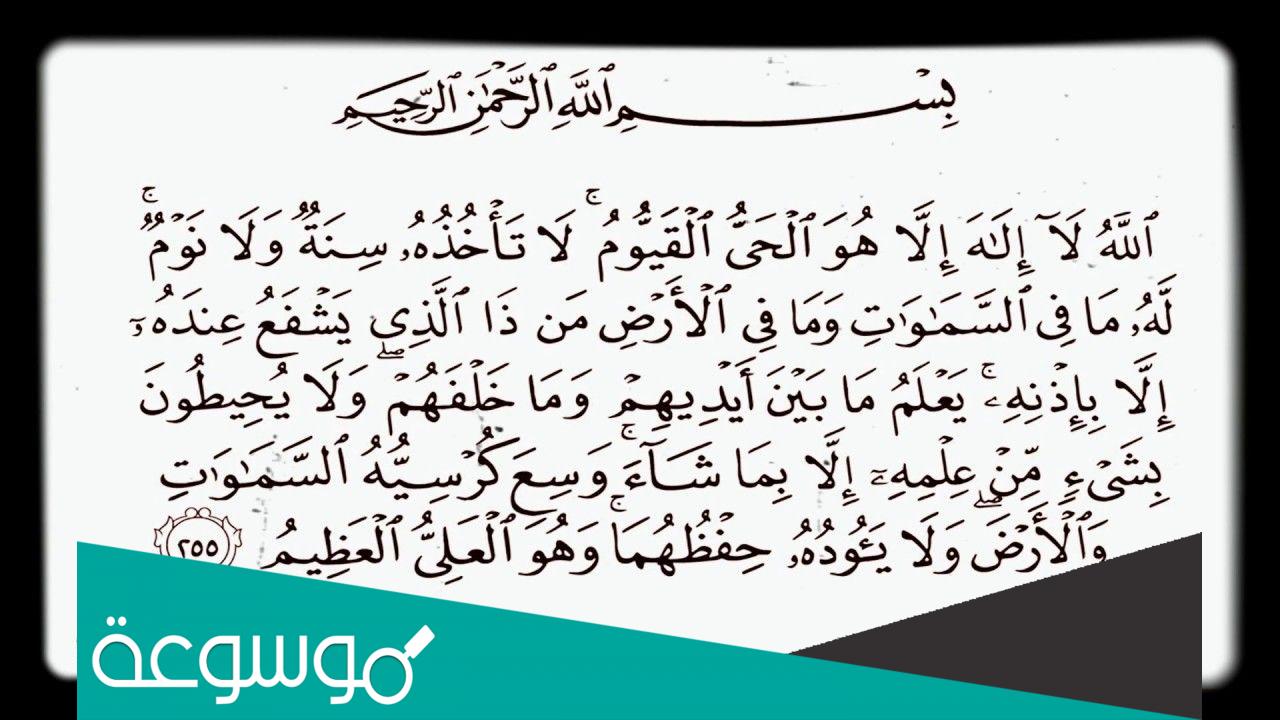 بِسْمِ ٱللَّهِ ٱلرَّحْمَٰنِ ٱلرَّحِيمِ
ٱللَّهُ لَآ إِلَٰهَ إِلَّا هُوَ ٱلْحَىُّ ٱلْقَيُّومُ ۚ لَا تَأْخُذُهُۥ سِنَةٌ وَلَا نَوْمٌ ۚ
لَّهُۥ مَا فِى ٱلسَّمَٰوَٰتِ وَمَا فِى ٱلْأَرْضِ مَن ذَا ٱلَّذِى يَشْفَعُ عِندَهُۥٓ
إِلَّا بِإِذْنِهِۦ ۚ يَعْلَمُ مَا بَيْنَ أَيْدِيهِمْ وَمَا خَلْفَهُمْ ۖ وَلَا يُحِيطُونَ
بِشَىْءٍ مِّنْ عِلْمِهِۦٓ إِلَّا بِمَا شَآءَ ۚ وَسِعَ كُرْسِيُّهُ ٱلسَّمَٰوَٰتِ
وَٱلْأَرْضَ ۖ وَلَا يَـُٔودُهُۥ حِفْظُهُمَا ۚ وَهُوَ ٱلْعَلِىُّ ٱلْعَظِيمُ ٢٥٥
موسوعة